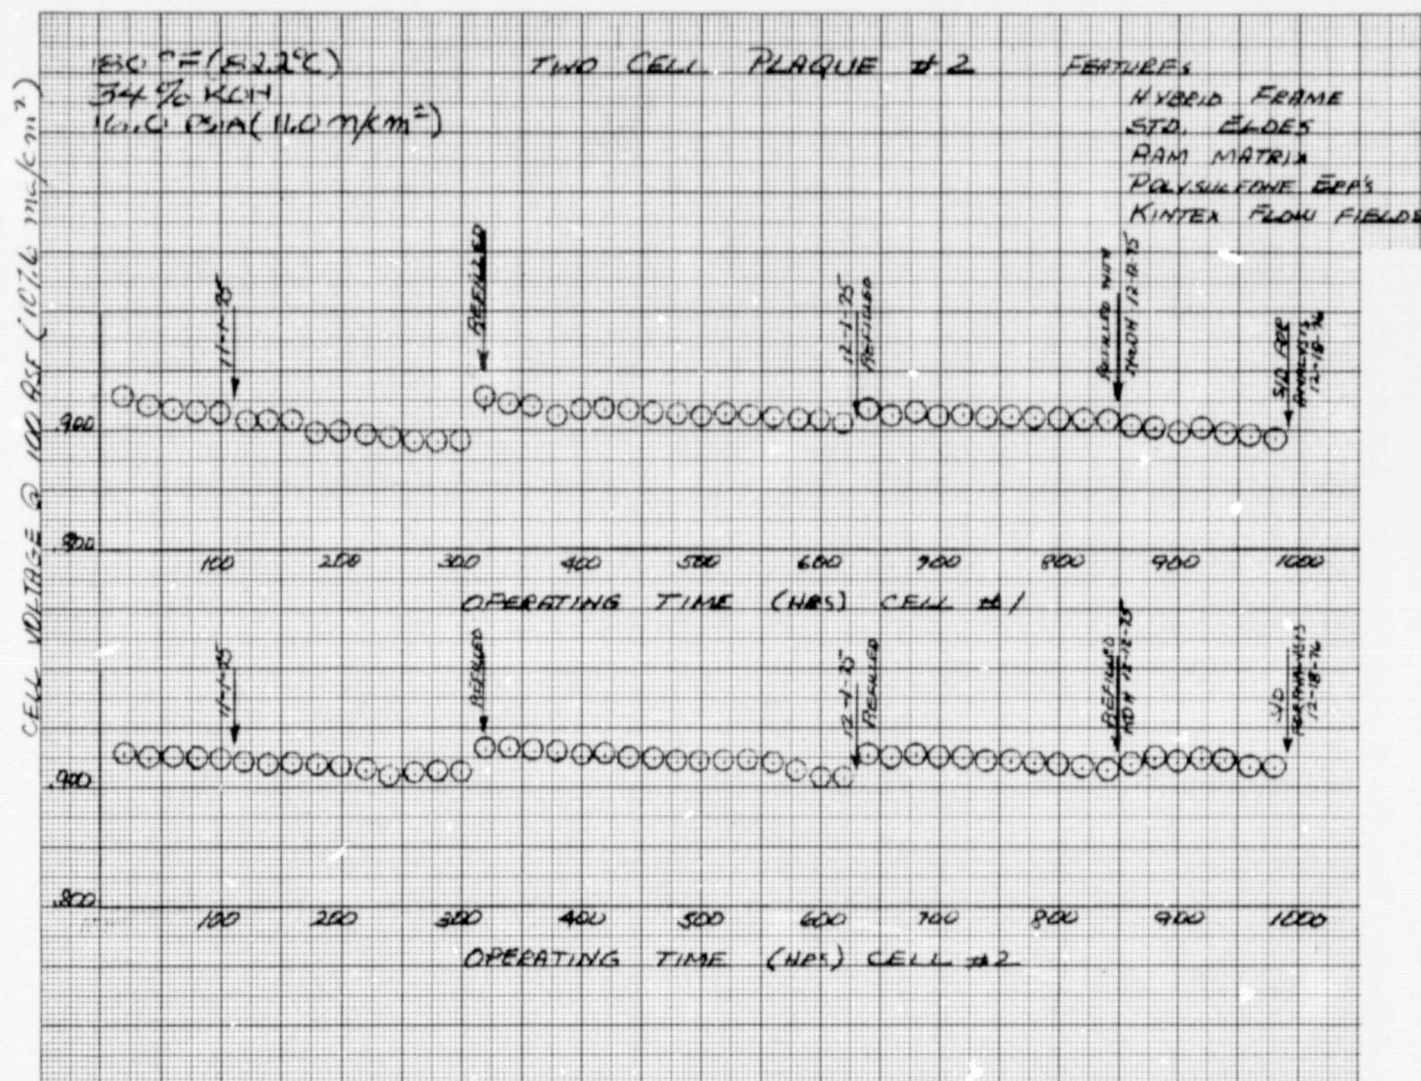 180°F (82.2°C)
34% KOH
16.0 PSIA (11.0 n/cm²)
TWO CELL PLAQUE #2
FEATURES
HYBRID FRAME
STD. ELDES
RAM MATRIX
POLYSULFONE EPP'S
KINTEX FLOW FIELDS
CELL VOLTAGE @ 100 ASF (107.6 ma/cm²)
11-1-75
REFILLED
12-1-75
REFILLED
REFILLED WITH
KOH 12-12-75
S/D FOR
ANALYSIS
12-18-76
.900
.800
100 200 300 400 500 600 700 800 900 1000
OPERATING TIME (HRS) CELL #1
11-1-75
REFILLED
12-1-75
REFILLED
REFILLED
KOH 12-12-75
S/D
FOR ANALYSIS
12-18-76
.900
.800
100 200 300 400 500 600 700 800 900 1000
OPERATING TIME (HRS) CELL #2